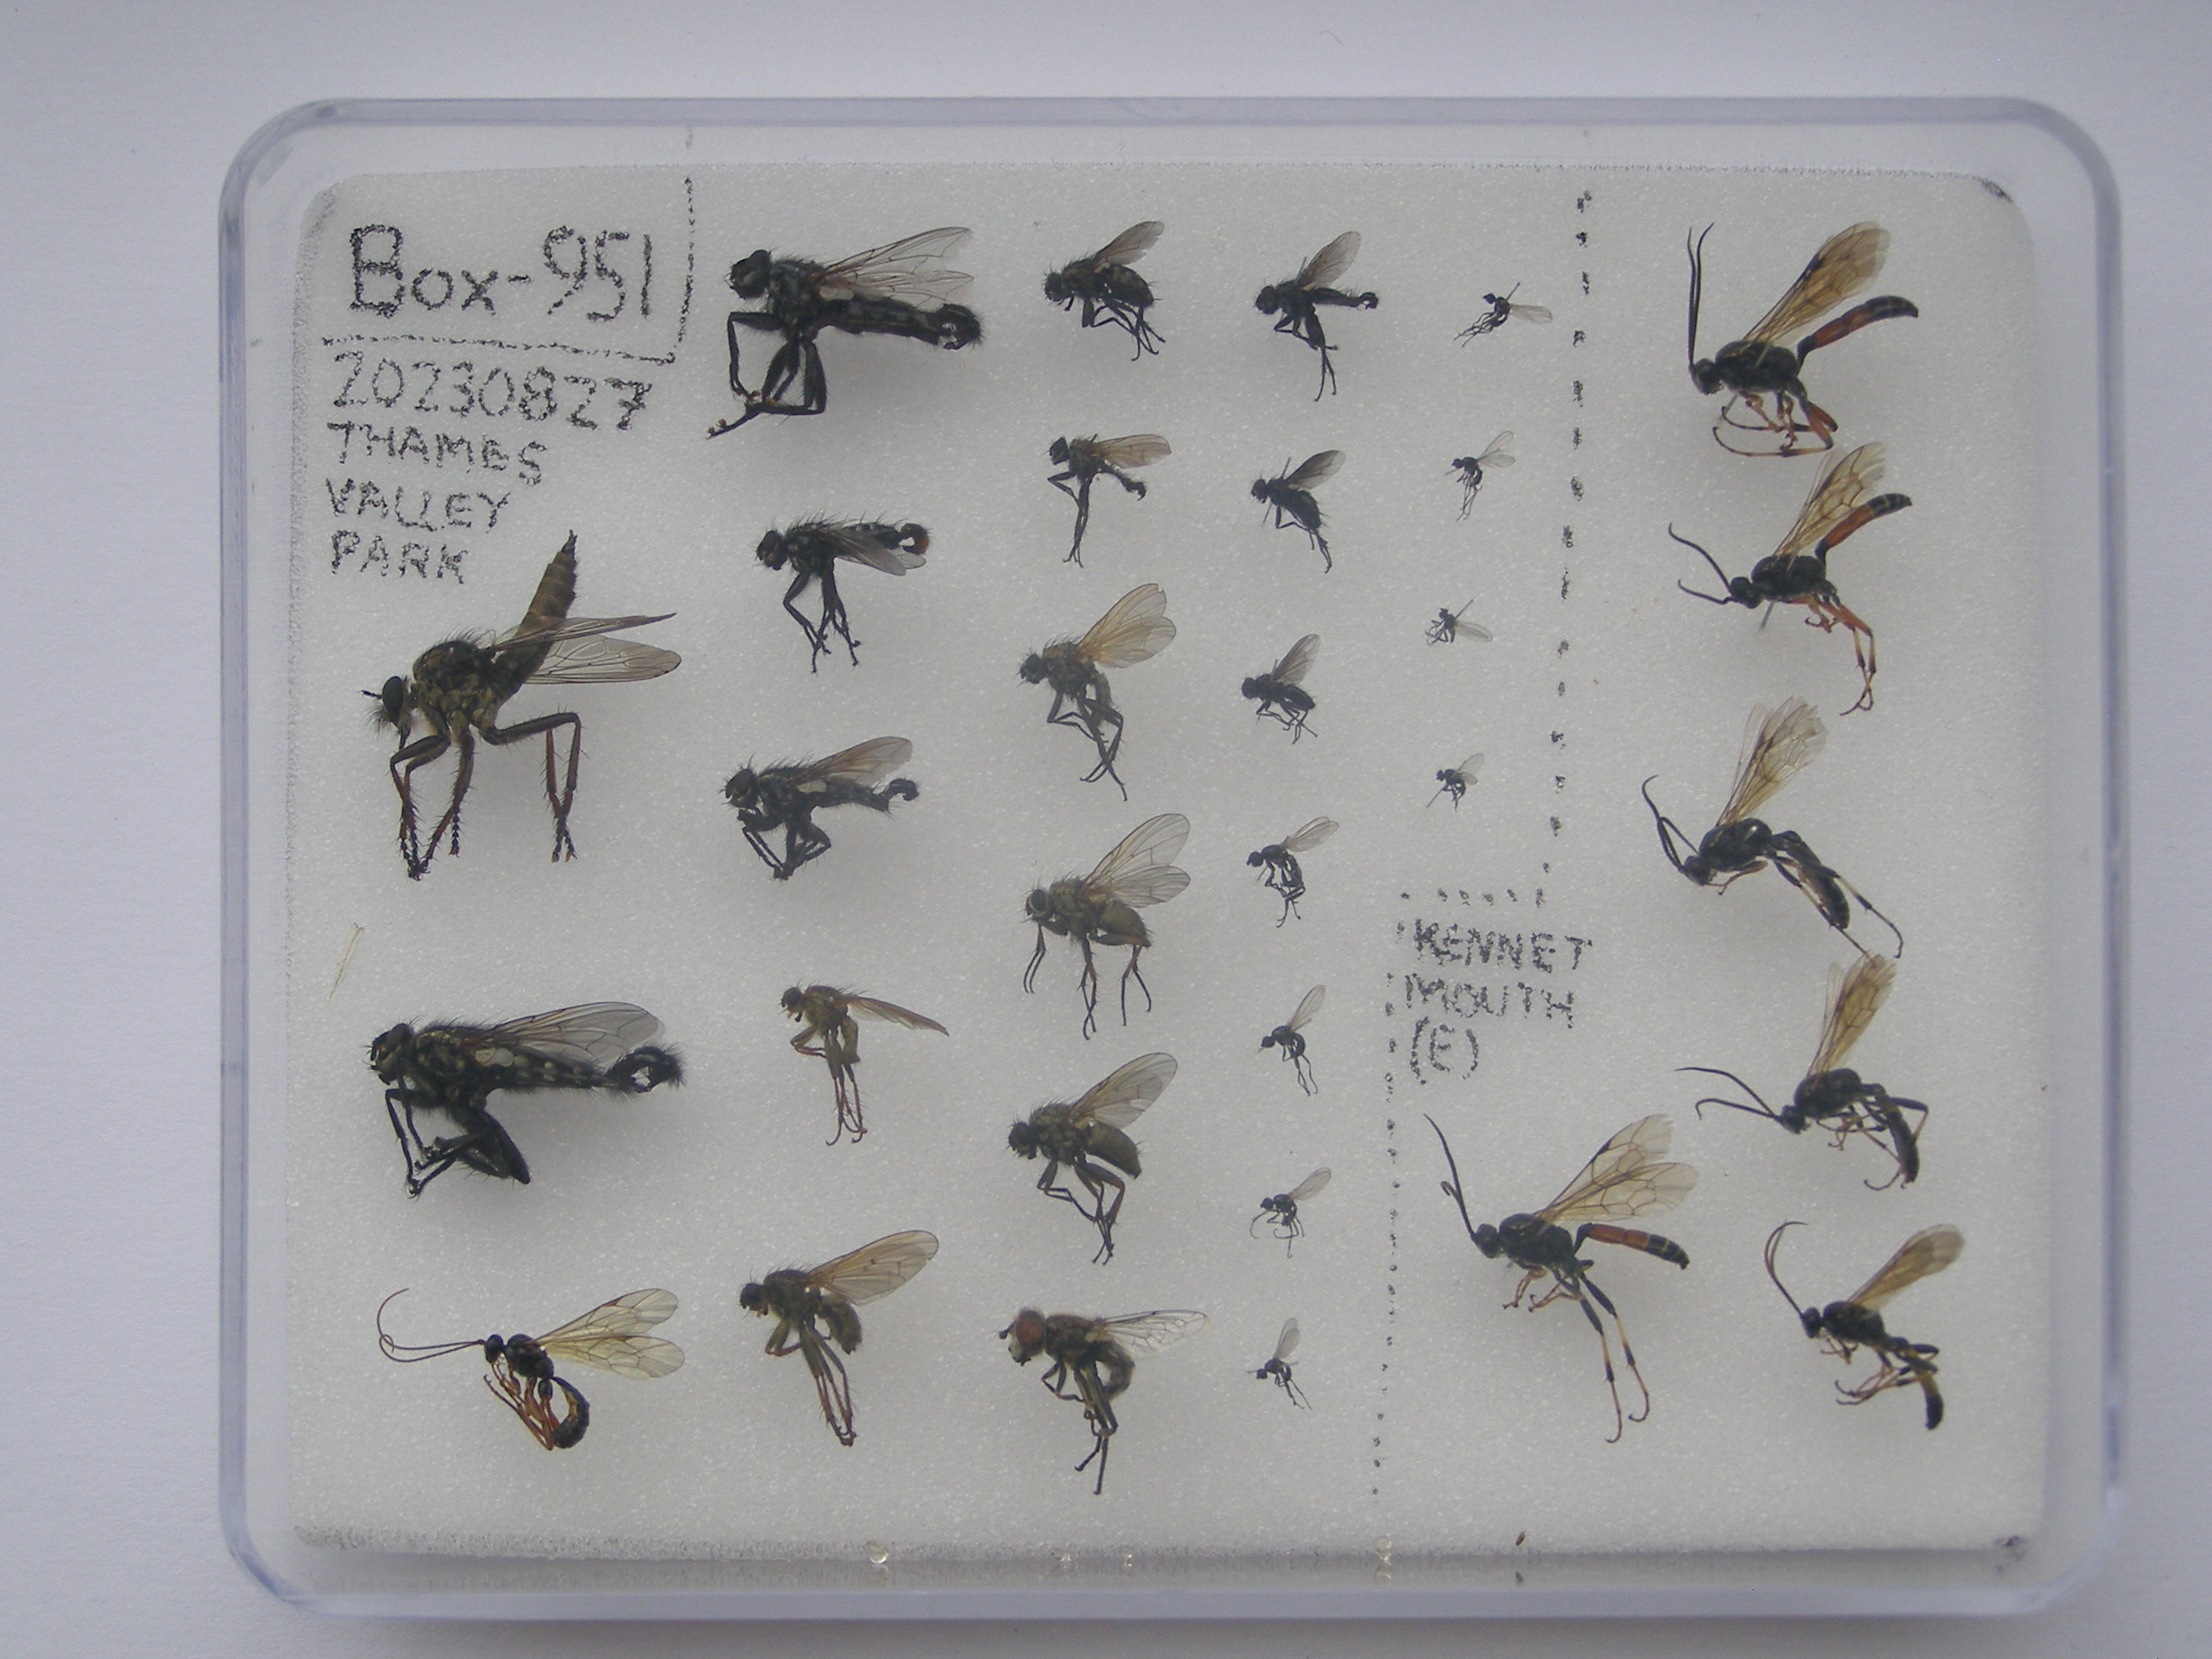 Box-951
20230827
THAMES
VALLEY
PARK
KENNET
MOUTH
(E)